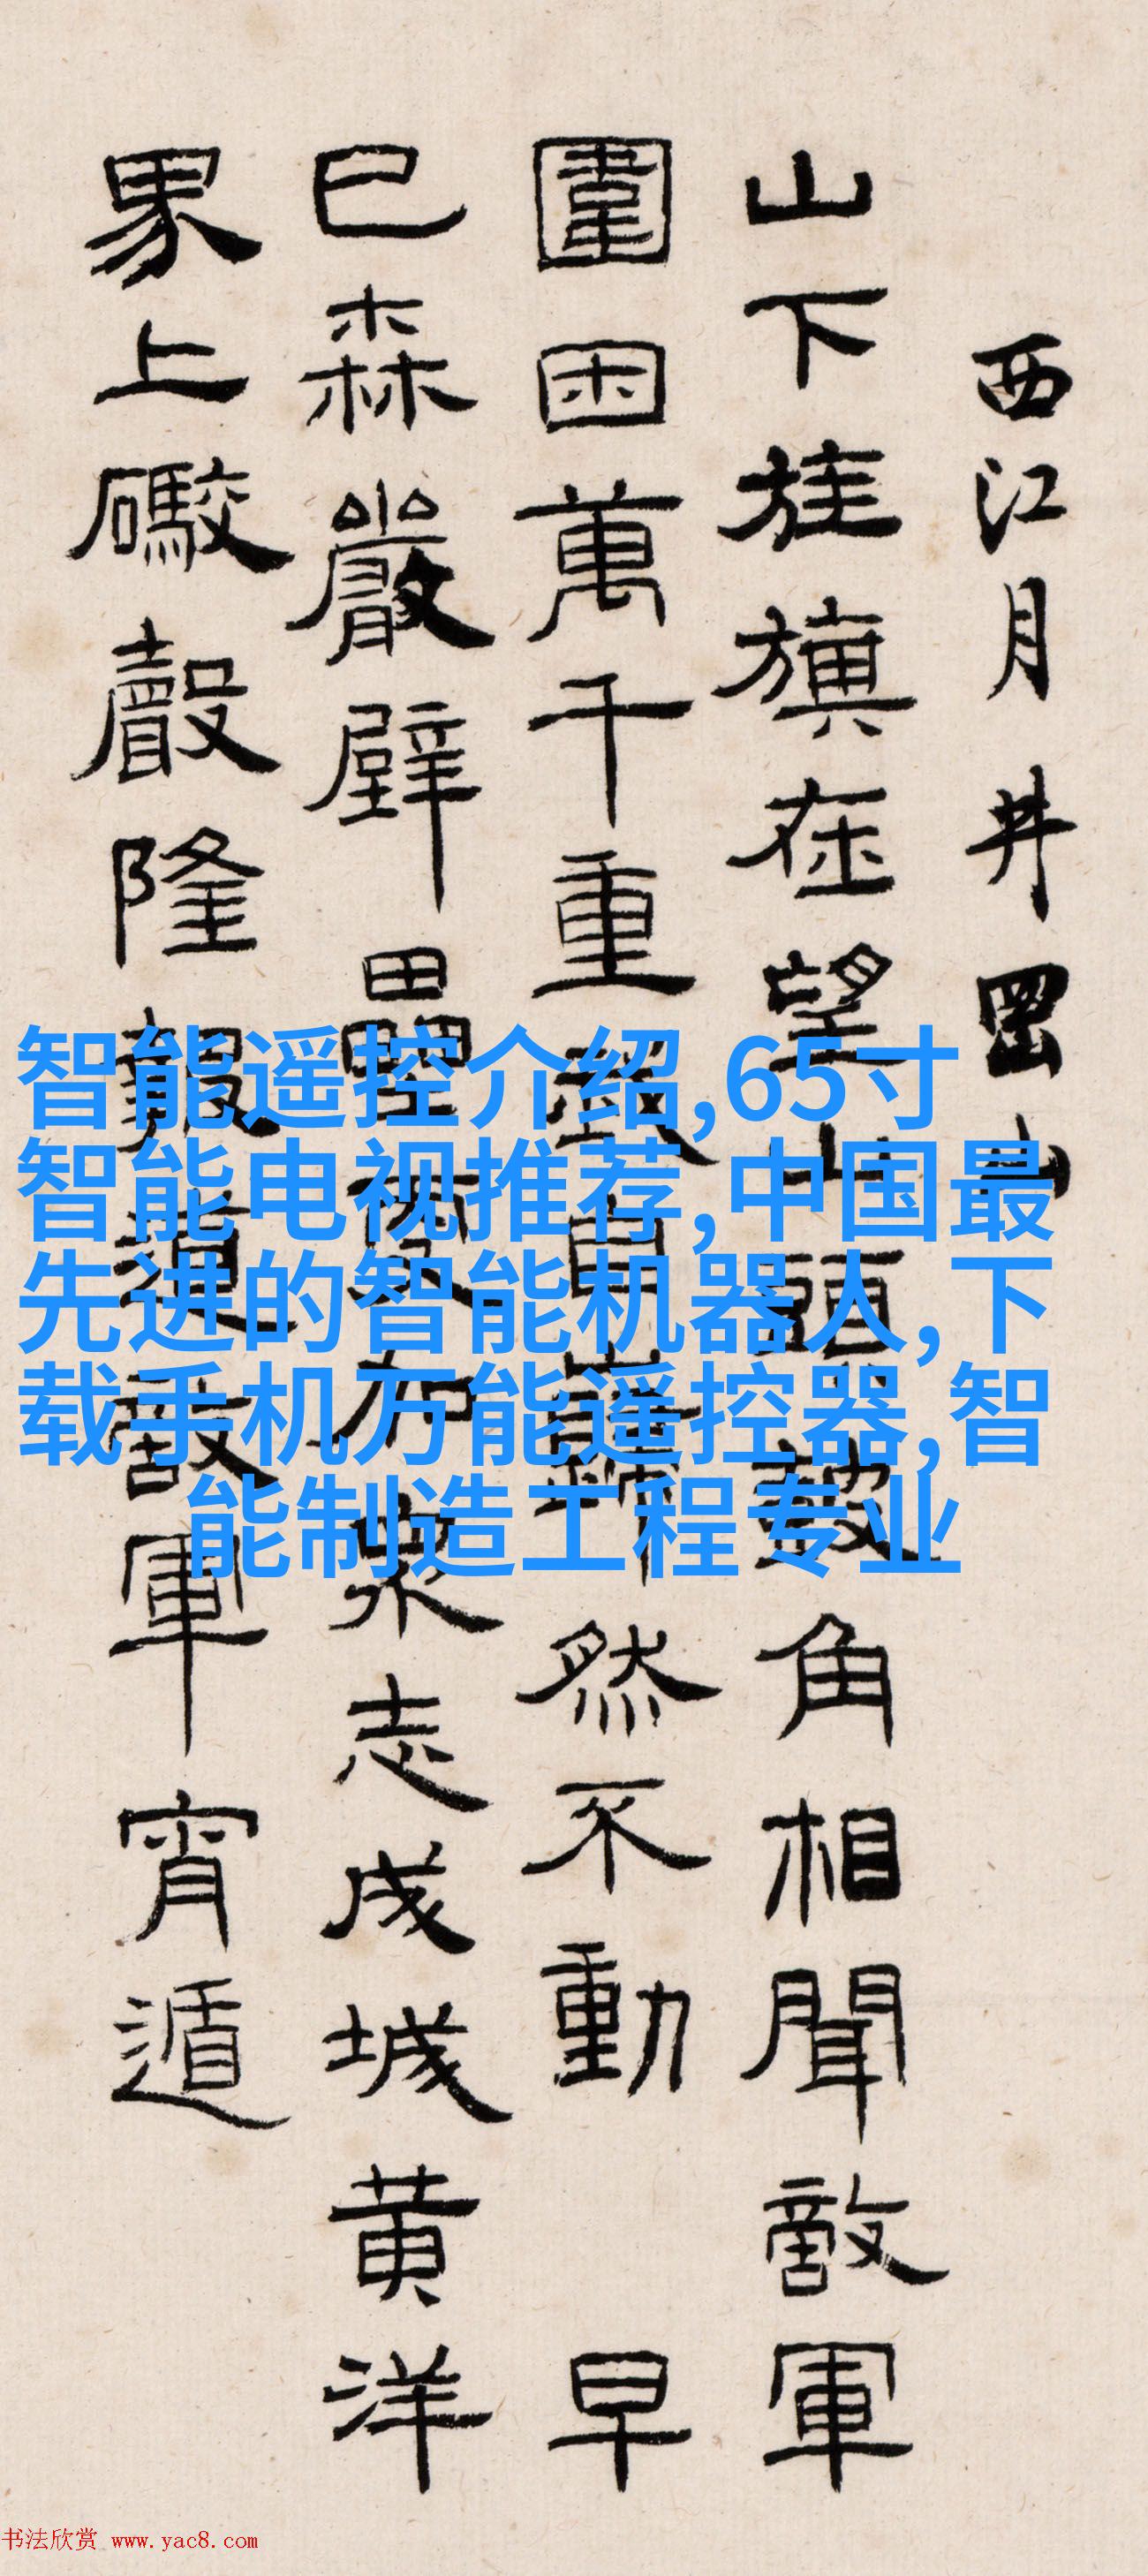 西江月井岡山
山下旌旗在望山頭鼓角相聞敵軍
圍困萬千重我自巋然不動 早
已森嚴壁壘更加衆志成城黄洋
界上礮聲隆報道敵軍宵遁
智能遥控介绍,65寸
智能电视推荐,中国最
先进的智能机器人,下
载手机万能遥控器,智
能制造工程专业
书法欣赏 www.yac8.com